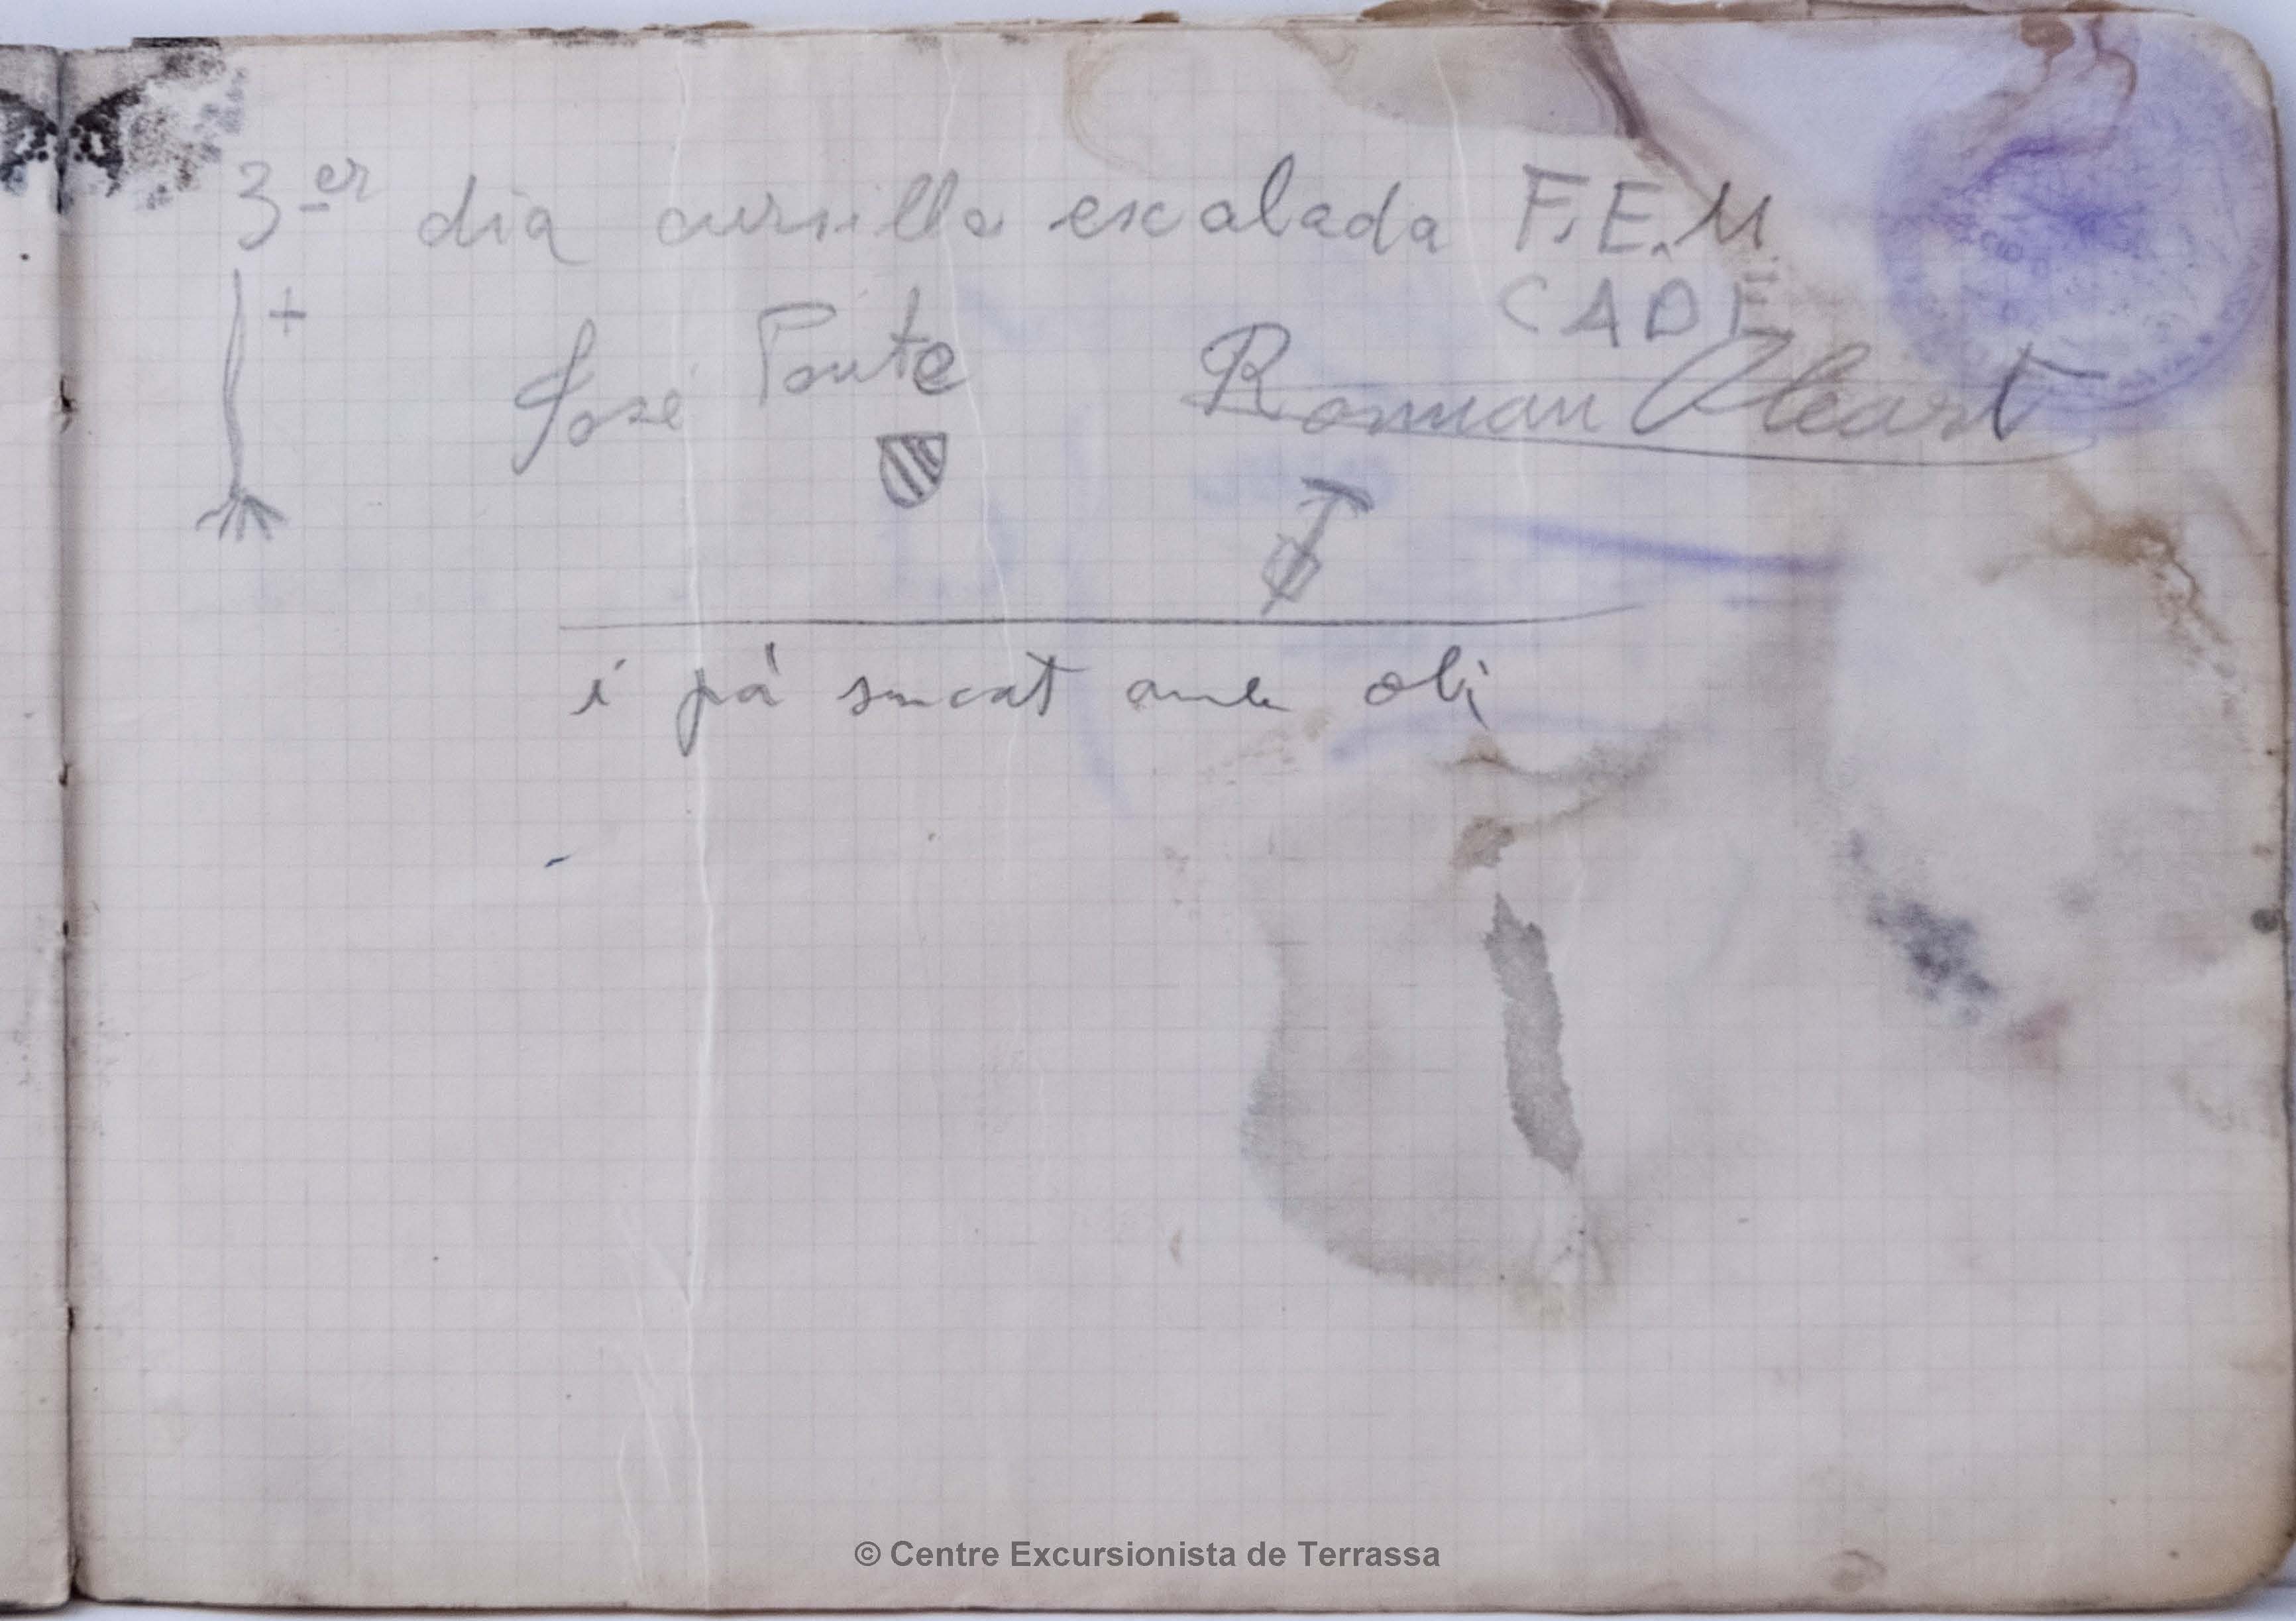 3er dia cursillo escalada F.E.M
CADE
José Ponte Roman Oleart
i pá sucat amb oli
© Centre Excursionista de Terrassa